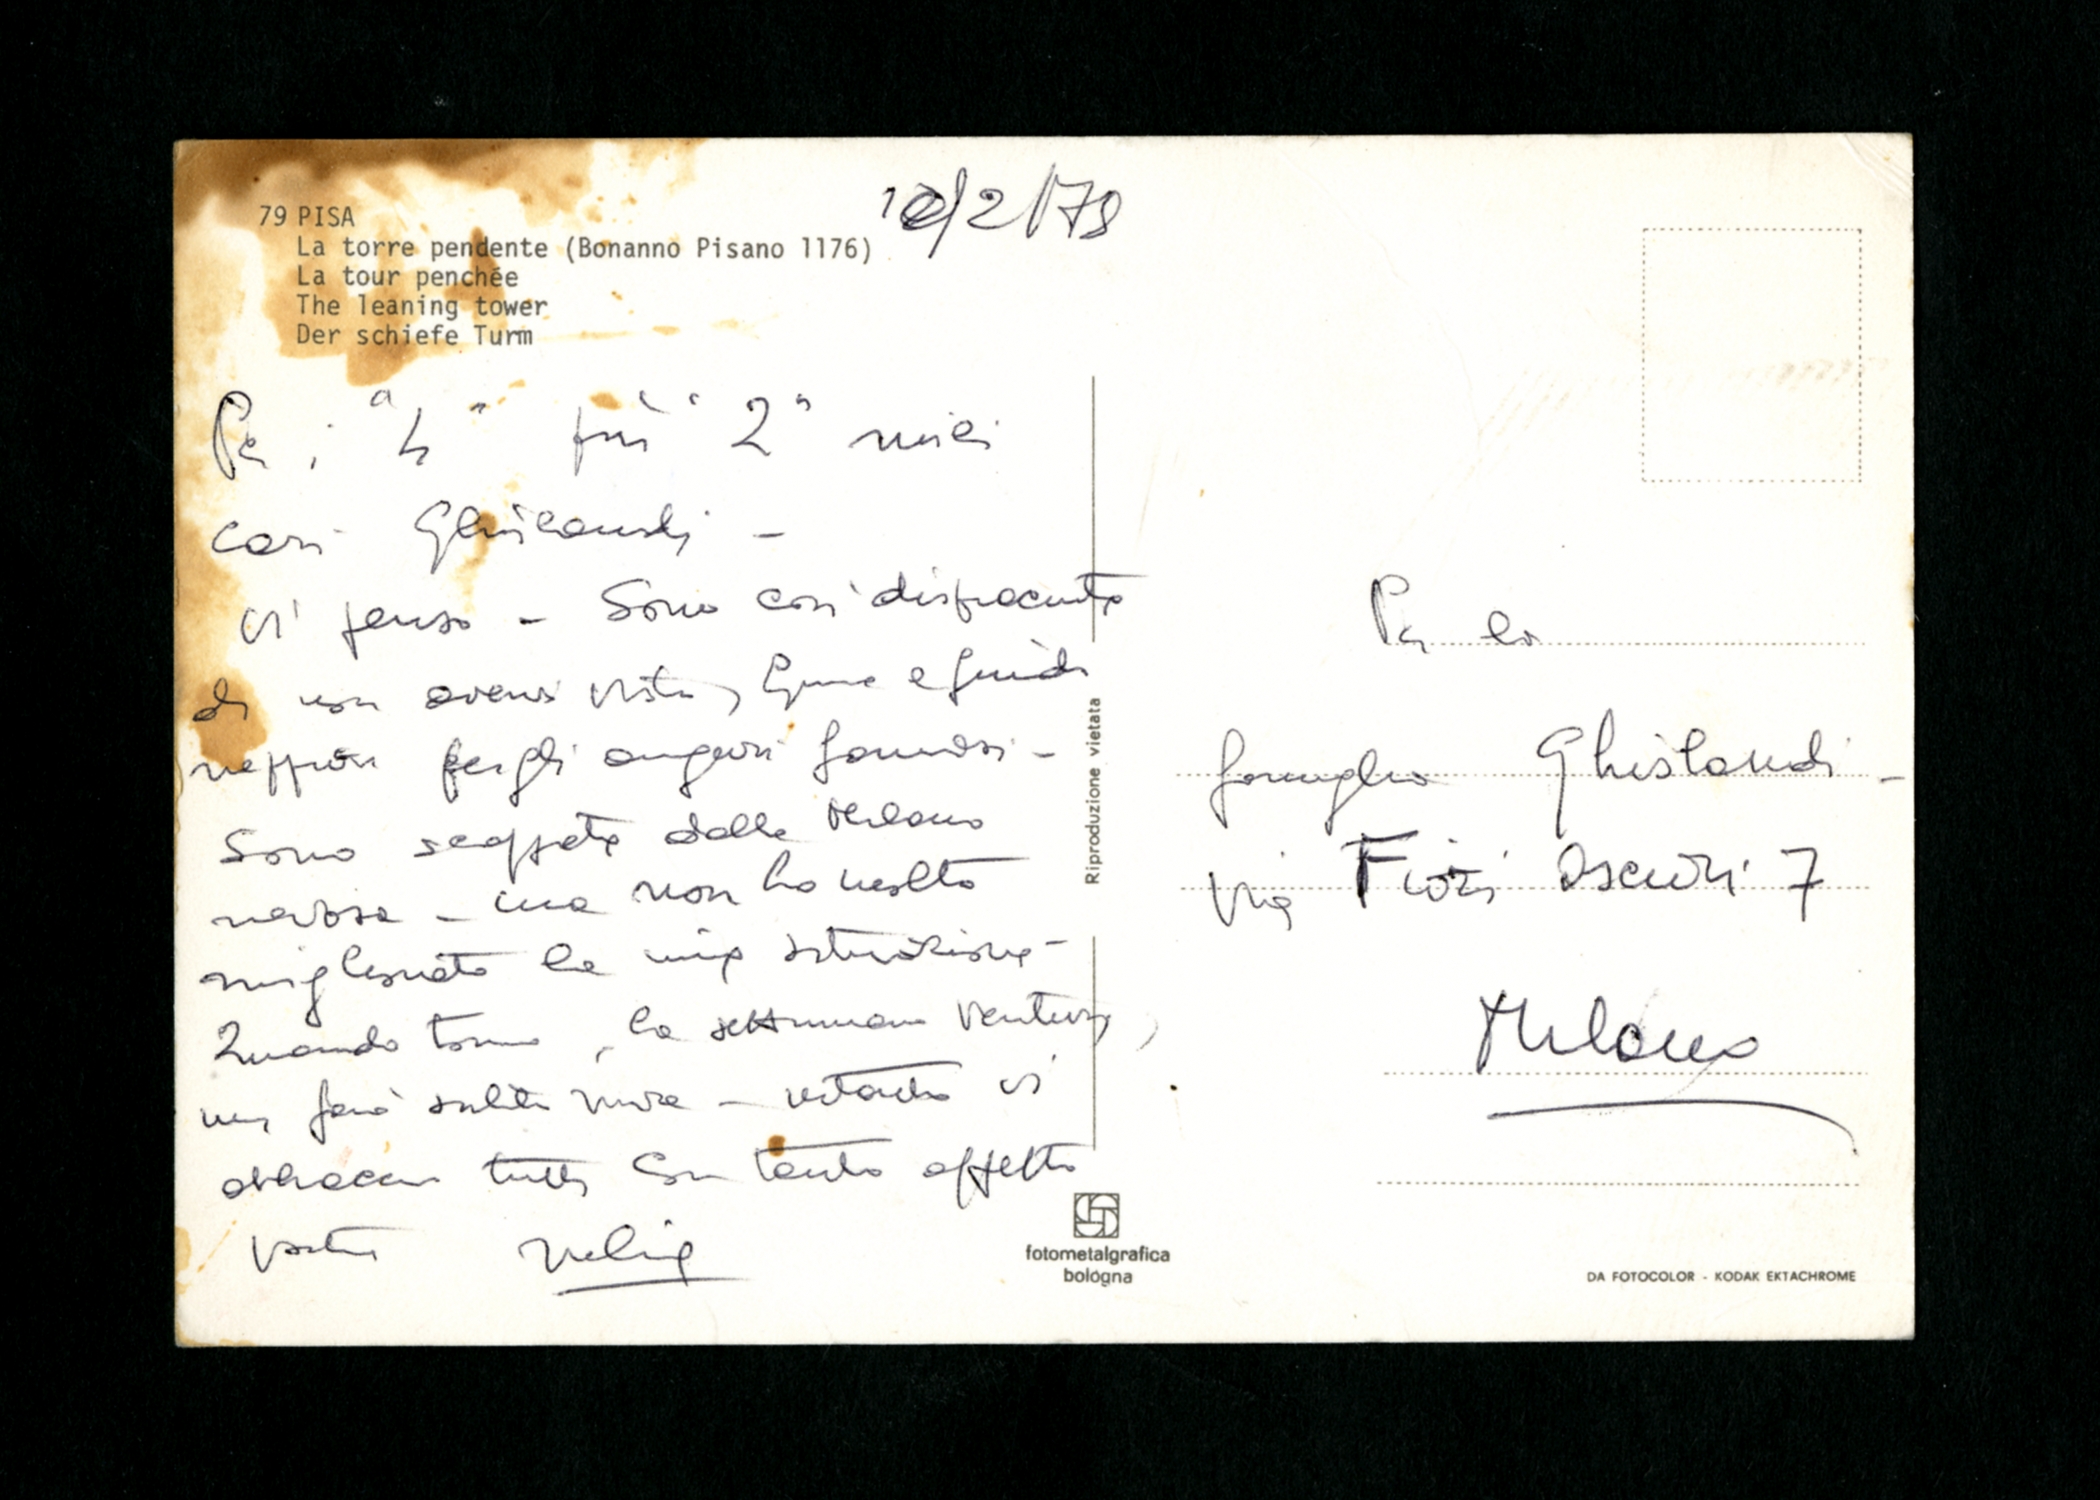 79 PISA
La torre pendente (Bonanno Pisano 1176)
La tour penchée
The leaning tower
Der schiefe Turm
Per i "4" più "2" miei
cari Ghislandi -
vi penso - Sono così dispiaciuta
di non avervi visti, e Guido
neppure per gli auguri famosi -
Sono scappata dalla Milano
nervosa - ma non ho molto
migliorato la mia situazione -
Quando torno, la settimana ventura,
mi farò subito viva - intanto vi
abbraccio tutti con tanto affetto
vostra
Riproduzione vietata
fotometalgrafica
bologna
Per la
famiglia Ghislandi -
via Fiori Oscuri 7
Milano
DA FOTOCOLOR - KODAK EKTACHROME